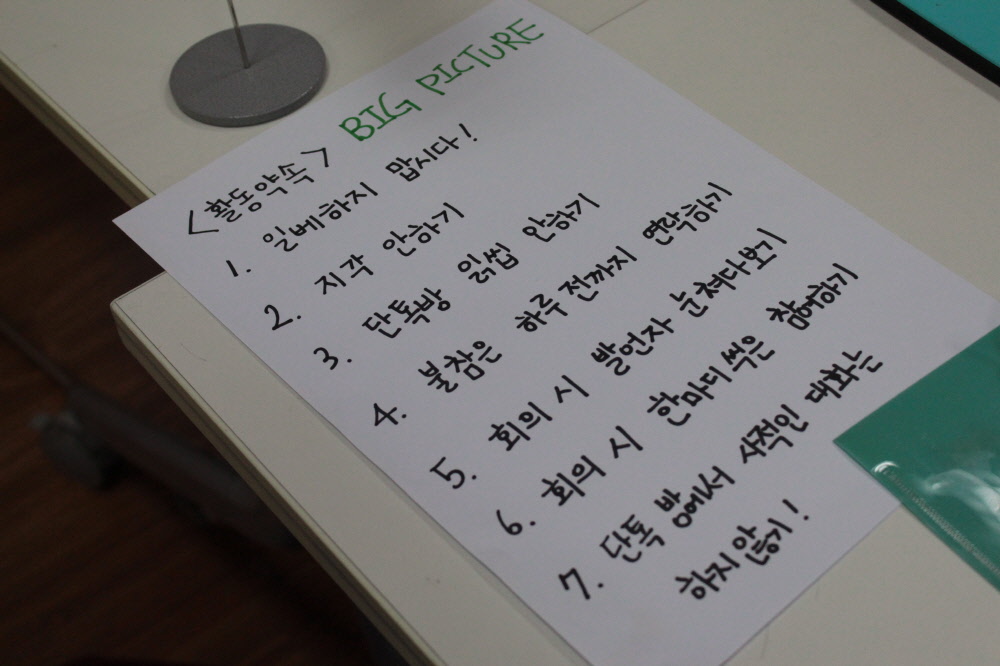 BIG PICTURE
<활동약속>
1. 일베하지 맙시다!
2. 지각 안하기
3. 단톡방 읽씹 안하기
4. 불참은 하루 전까지 연락하기
5. 회의 시 발언자 눈 쳐다보기
6. 회의 시 한마디씩은 참여하기
7. 단톡 방에서 사적인 대화는
하지 않기!